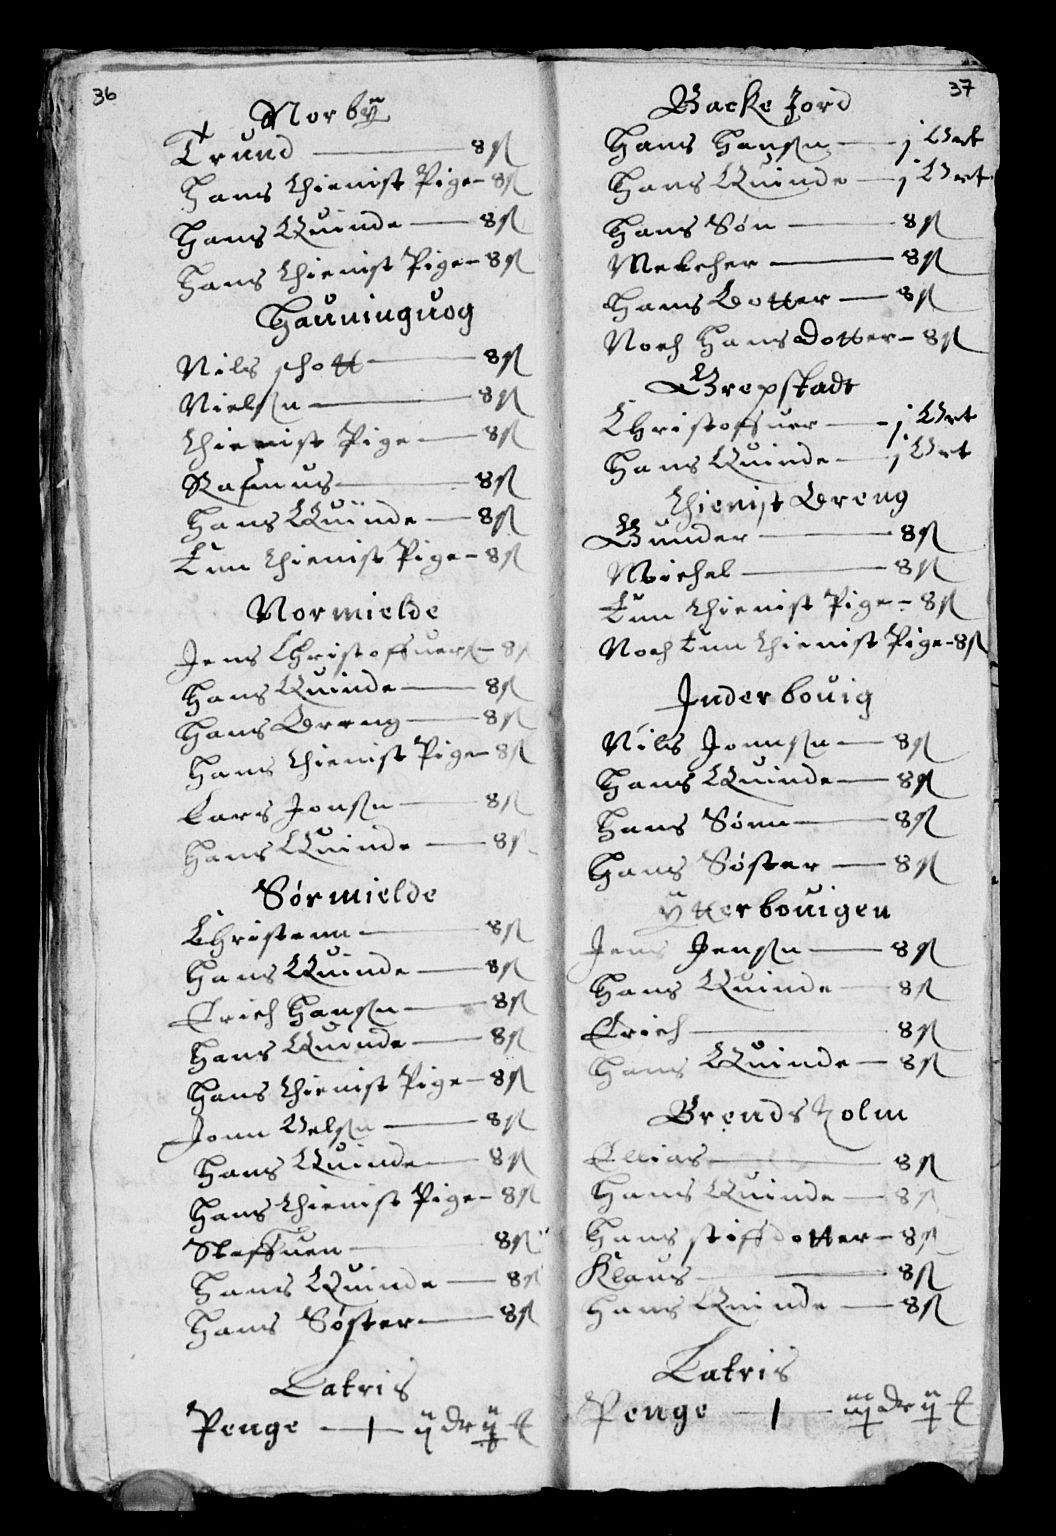 36
Norbÿ
Trund — 8 ſ
Hans thienist Pige – 8 ſ
Hans Quinde — 8 ſ
Hans thienist Pige – 8 ſ
Hauninguog
Nils schott — 8 ſ
Nielsn — 8 ſ
thienist Pige — 8 ſ
Rasmus — 8 ſ
Hans Quinde — 8 ſ
Enn thienist Pige – 8 ſ
Normielde
Jens Christoffuers – 8 ſ
Hans Quinde — 8 ſ
Hans Dreng — 8 ſ
Hans thienist Pige – 8 ſ
Lars Jonsn — 8 ſ
Hans Quinde — 8 ſ
Sørmielde
Christenn — 8 ſ
Hans Quinde — 8 ſ
Erich Hansn — 8 ſ
Hans Quinde — 8 ſ
Hans thienist Pige – 8 ſ
Jonn Oelsn — 8 ſ
Hans Quinde — 8 ſ
Hans thienist Pige – 8 ſ
Steffuen — 8 ſ
Hans Quinde — 8 ſ
Hans Søster — 8 ſ
Latris
Penge —
37
Backe Jord
Hans Hansn — j Ort
Hans Quinde — j Ort
Hans Søn — 8 ſ
Melcher — 8 ſ
Hans Dotter — 8 ſ
Noch Hans Dotter – 8 ſ
Grepstadt
Christoffuer — j Ort
Hans Quinde — j Ort
thienist Dreng
Gunder — 8 ſ
Michel — 8 ſ
Enn thienist Pige – 8 ſ
Noch Enn thienist Pige – 8 ſ
Inderbouig
Nils Jonnsn — 8 ſ
Hans Quinde — 8 ſ
Hans Sønn — 8 ſ
Hans Søster — 8 ſ
ÿtterbouigen
Jens Jensn — 8 ſ
Hans Quinde — 8 ſ
Erich — 8 ſ
Hans Quinde — 8 ſ
Brendsholm
Ellias — 8 ſ
Hans Quinde — 8 ſ
Hans stiffdotter – 8 ſ
Klaus — 8 ſ
Hans Quinde — 8 ſ
Latris
Penge —